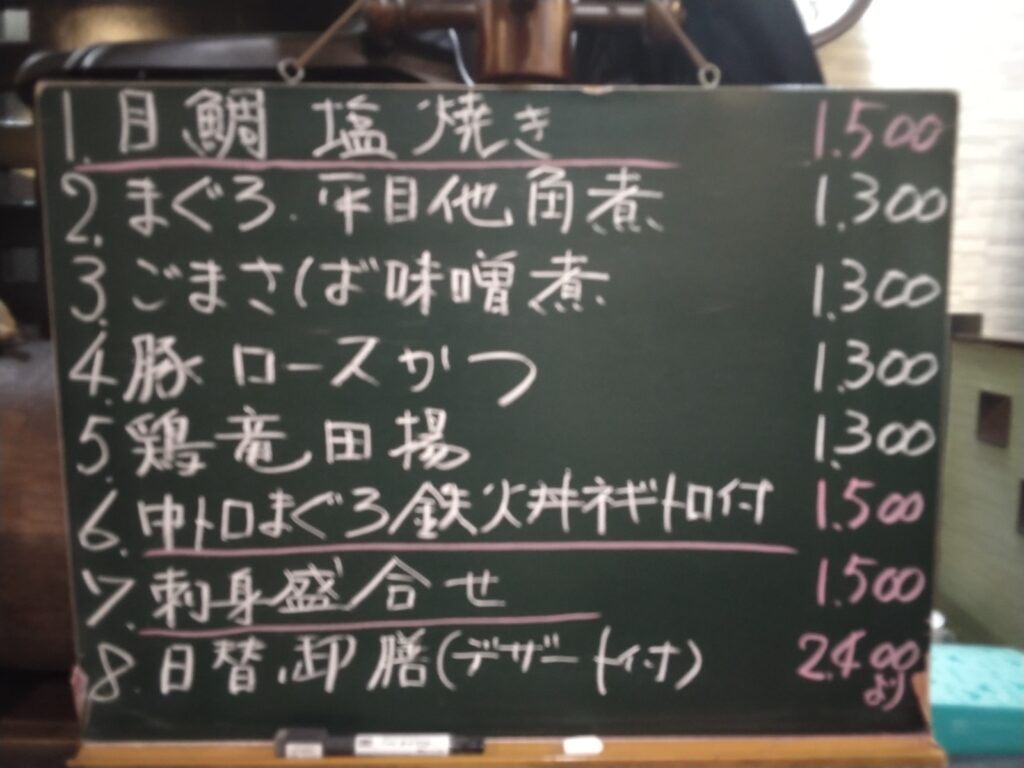 1. 目鯛 塩焼き 1.500
2. まぐろ.平目他角煮 1.300
3. ごまさば味噌煮 1.300
4. 豚ロースかつ 1.300
5. 鶏竜田揚 1.300
6. 中トロまぐろ鉄火丼ネギトロ付 1.500
7. 刺身盛合せ 1.500
8. 日替.御膳(デザート付) 2.400
より